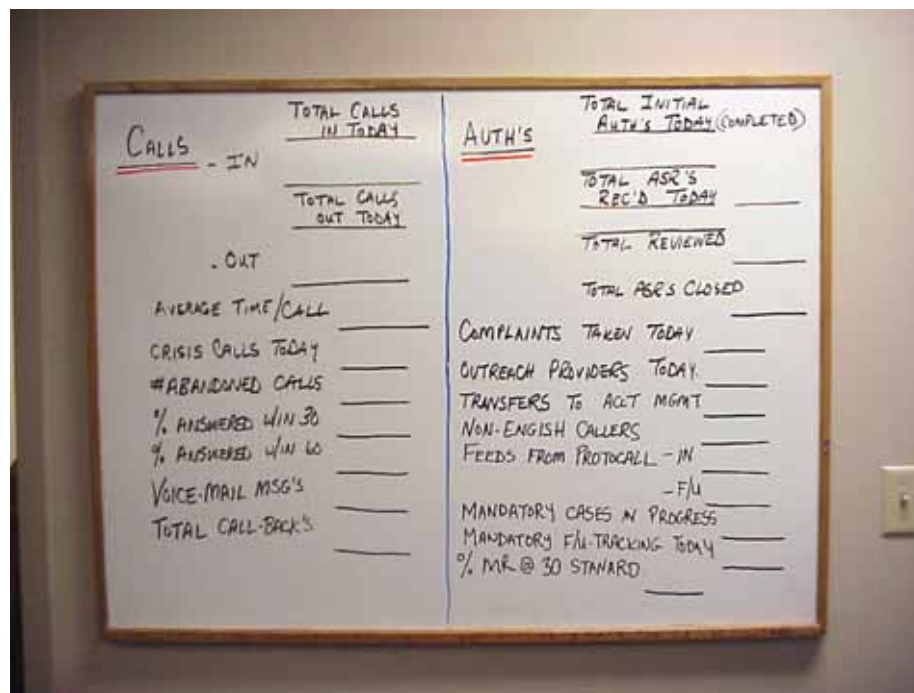 CALLS
TOTAL CALLS
IN TODAY
- IN
TOTAL CALLS
OUT TODAY
- OUT
AVERAGE TIME/CALL
CRISIS CALLS TODAY
#ABANDONED CALLS
% ANSWERED W/IN 30
% ANSWERED W/IN 60
VOICE-MAIL MSG'S
TOTAL CALL-BACK'S
AUTH'S
TOTAL INITIAL
AUTH'S TODAY (COMPLETED)
TOTAL ASR'S
REC'D TODAY
TOTAL REVIEWED
TOTAL ASR'S CLOSED
COMPLAINTS TAKEN TODAY
OUTREACH PROVIDERS TODAY
TRANSFERS TO ACCT MGMT
NON-ENGISH CALLERS
FEEDS FROM PROTOCALL - IN
- F/U
MANDATORY CASES IN PROGRESS
MANDATORY F/U-TRACKING TODAY
% MR @ 30 STANARD